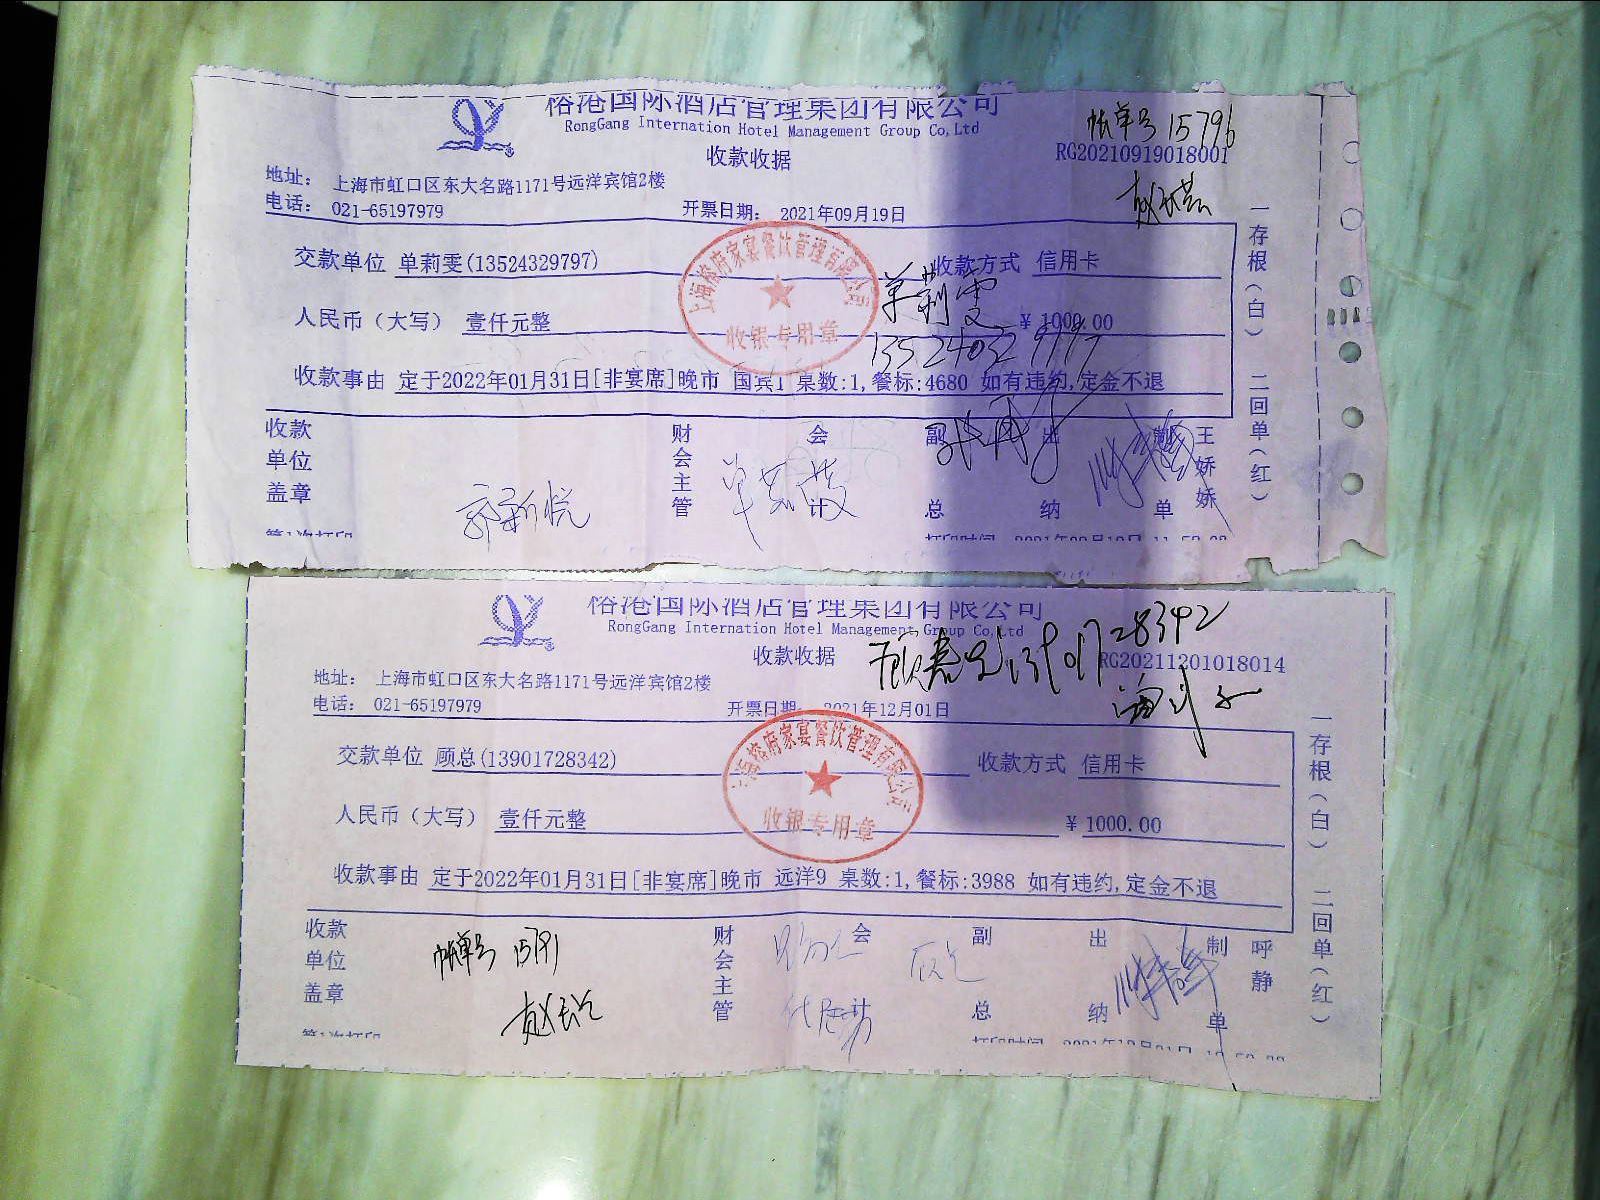 榕港国际酒店管理集团有限公司
RongGang Internation Hotel Management Group Co,Ltd
帐单号 15796
收款收据
RG20210919018001
地址： 上海市虹口区东大名路1171号远洋宾馆2楼
电话： 021-65197979
开票日期： 2021年09月19日
交款单位 单莉雯(13524329797)
收款方式 信用卡
人民币（大写） 壹仟元整
¥ 1000.00
收款事由 定于2022年01月31日[非宴席]晚市 国宾1 桌数:1,餐标:4680 如有违约,定金不退
上海榕府家宴餐饮管理有限公司
收银专用章
单莉雯
收款单位盖章
财会主管
会计
副总
出纳
制单
王娇娇
一存根(白) 二回单(红)
第1次打印
打印时间
榕港国际酒店管理集团有限公司
RongGang Internation Hotel Management Group Co,Ltd
收款收据
RG20211201018014
地址： 上海市虹口区东大名路1171号远洋宾馆2楼
电话： 021-65197979
开票日期： 2021年12月01日
交款单位 顾总(13901728342)
收款方式 信用卡
人民币（大写） 壹仟元整
¥ 1000.00
收款事由 定于2022年01月31日[非宴席]晚市 远洋9 桌数:1,餐标:3988 如有违约,定金不退
上海榕府家宴餐饮管理有限公司
收银专用章
收款单位盖章
帐单号 15791
财会主管
会
副总
出纳
制单
呼静
一存根(白) 二回单(红)
第1次打印
打印时间